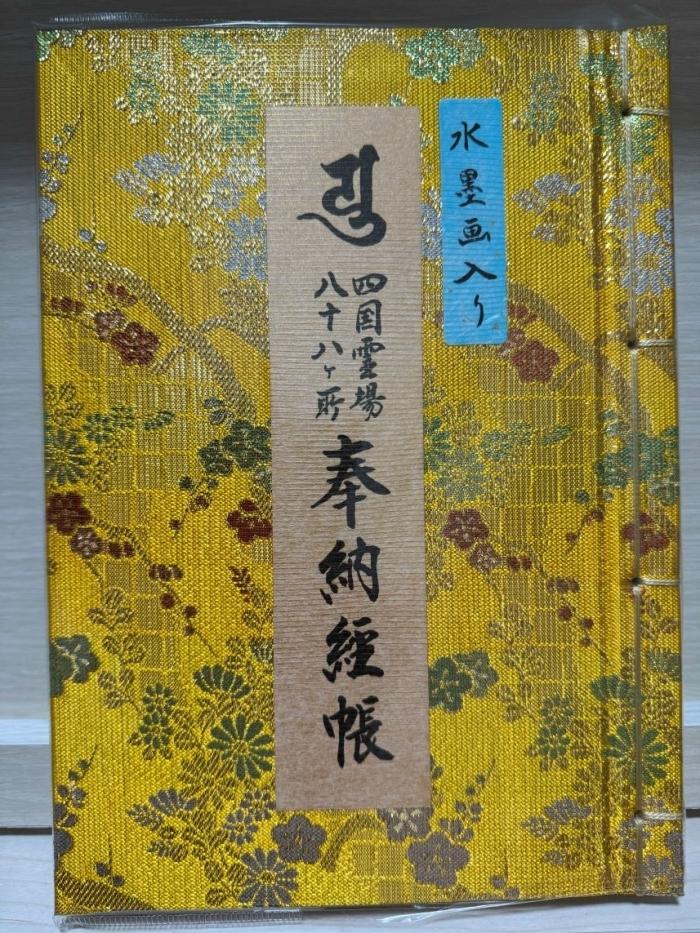 水墨画入り
四国霊場
八十八ヶ所
奉納經帳